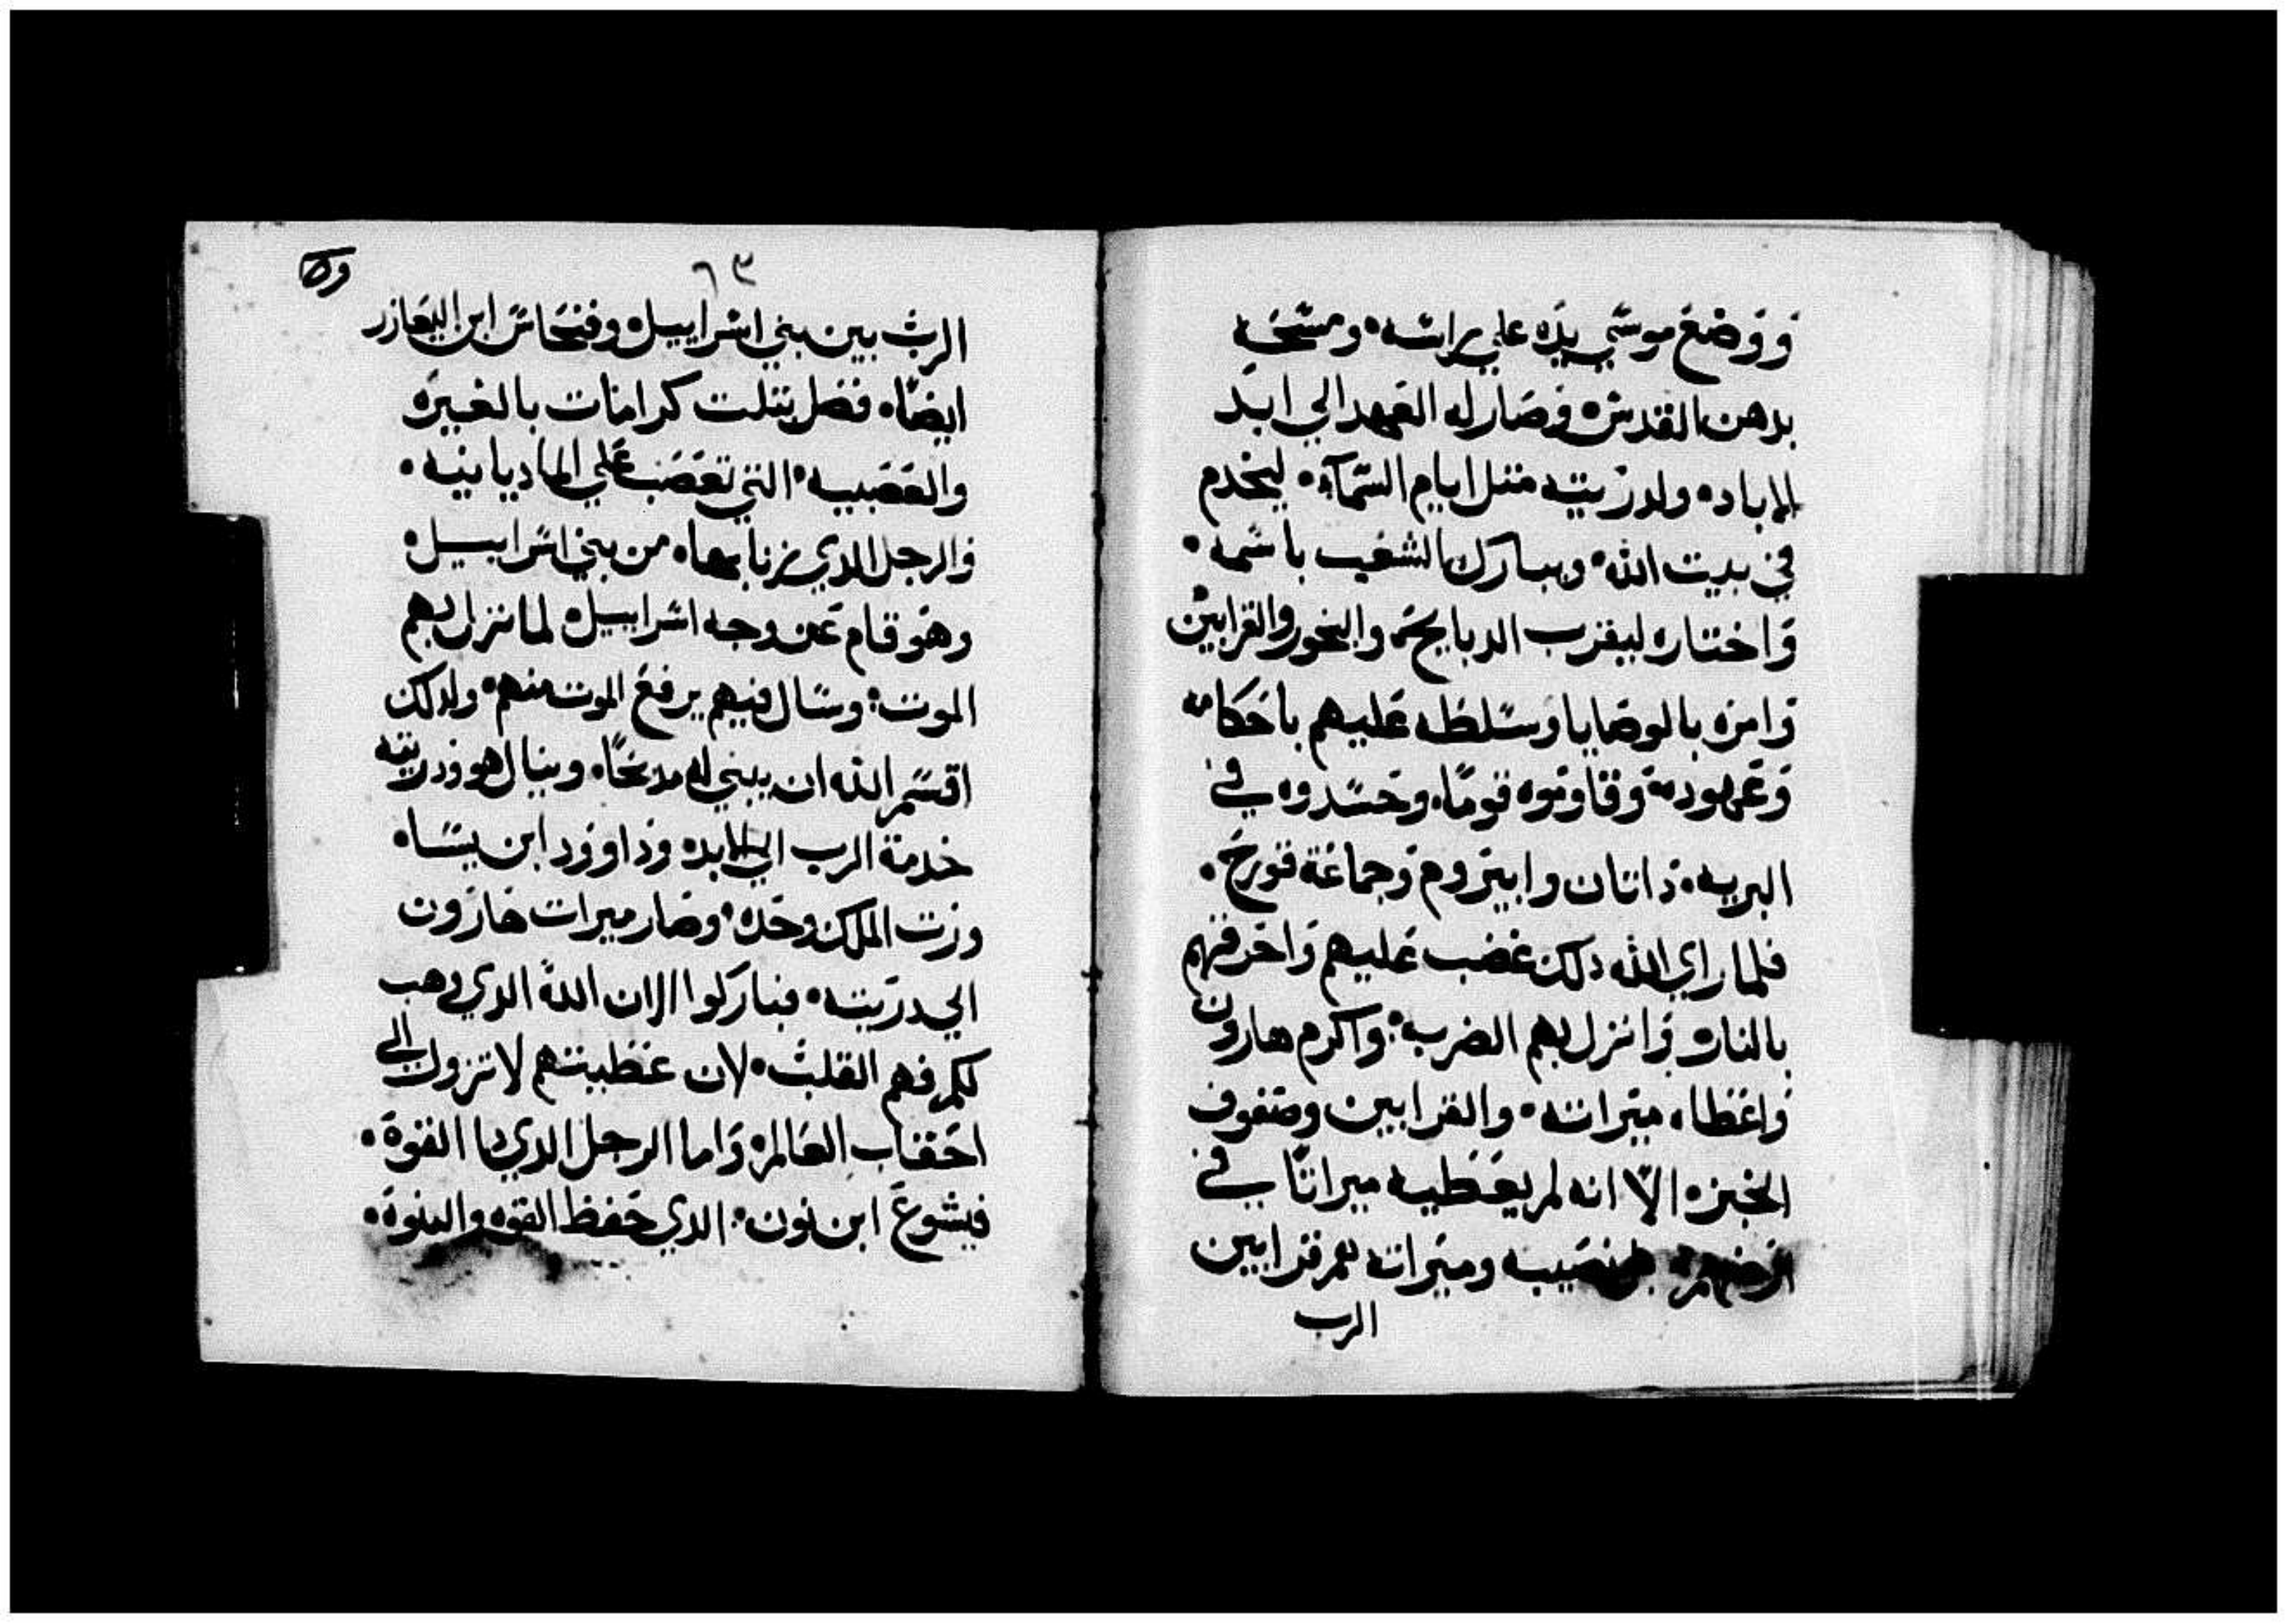 ووضع موسي يده علي راسه ومسحه
بدهن القدس وصار له العهد الي ابد
الاباد ولدريته متل ايام السماء ليخدم
في بيت الله ويبارك الشعب باسمه
واختاره ليقرب الدبايح والبخور والقرابين
وامره بالوصايا وسلطه عليهم باحكامه
وعهوده وقاوموه قوما وحسدوه في
البريه داتان وابيروم وجماعة قورح
فلما راي الله دلك غضب عليهم واحرقهم
بالنار وانزل بهم الضرب واكرم هارون
واعطاه ميراته والقرابين وصفوف
الخبز الا انه لم يعطيه ميراتا في
ارضهم نصيبه وميراته هم قرابين
الرب
٦٣
الرب بين بني اسراييل وفنحاس ابن اليعازر
ايضا فضل بتلت كرامات بالغيره
والعصبيه التي تعصب علي الماديانيه
والرجل الدي زنا بها من بني اسراييل
وهو قام عن وجه اسراييل لما نزل بهم
الموت وسال فيهم يرفع الموت منهم ولدلك
اقسم الله ان يبني له مدبحا وينال هو ودريته
خدمة الرب الي الابد وداوود ابن يسا
ورت الملك وحده وصار ميرات هارون
الي دريته فباركوا الان الله الدي وهب
لكم فهم القلب لان عظيتهم لا تزول الي
احقاب العالم واما الرجل الدي دا القوة
فيشوع ابن نون الدي حفظ القوه والنبوة